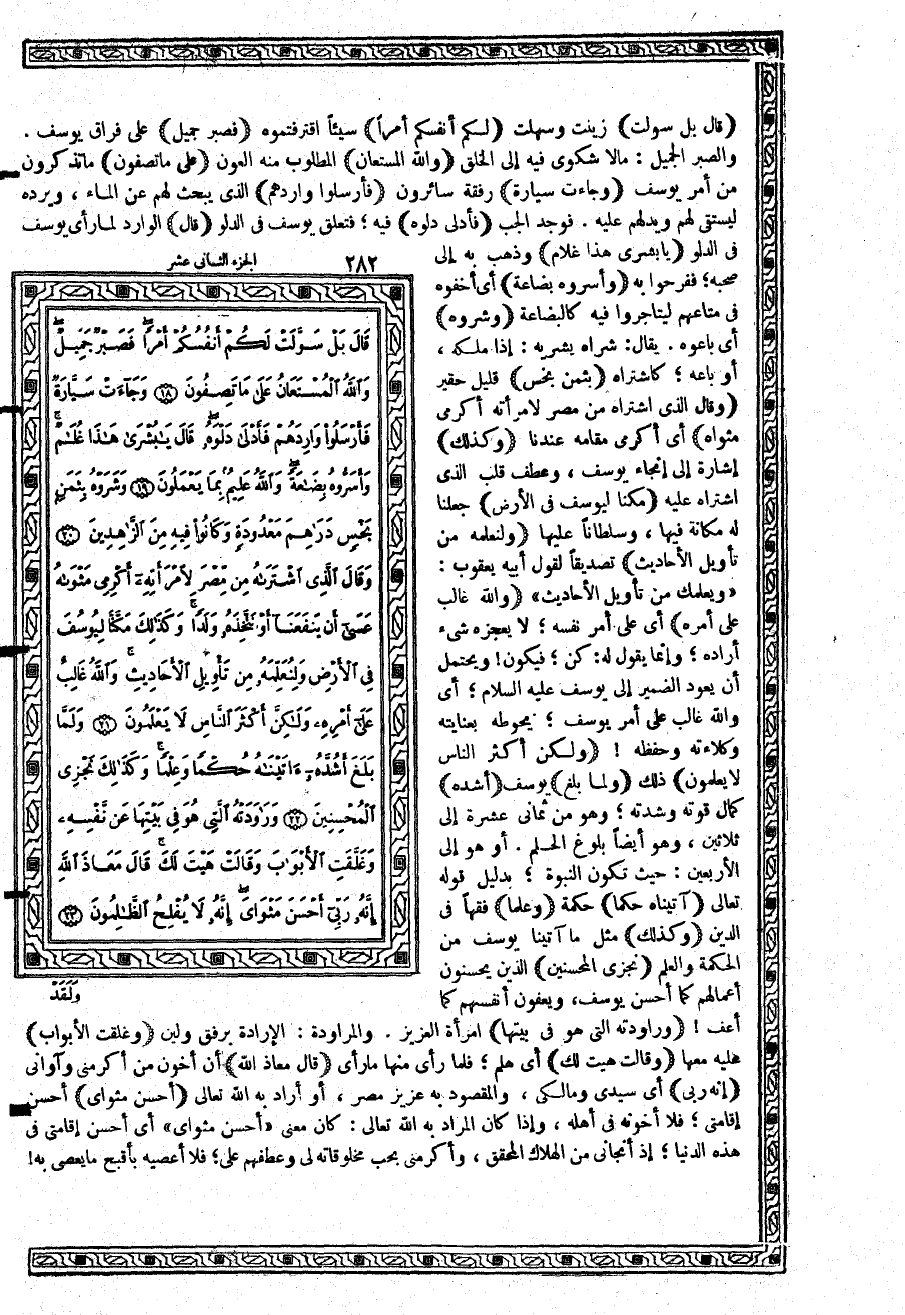 (قال بل سولت) زينت وسهلت (لكم أنفسكم أمراً) سيئاً اقترفتموه (فصبر جميل) على فراق يوسف .
والصبر الجميل : مالا شكوى فيه إلى الخلق (والله المستعان) المطلوب منه العون (على ماتصفون) ماتذكرون
من أمر يوسف (وجاءت سيارة) رفقة سائرون (فأرسلوا واردهم) الذى يبحث لهم عن الماء ، ويرده
ليستقى لهم ويدلهم عليه . فوجد الجب (فأدلى دلوه) فيه ؛ فتعلق يوسف فى الدلو (قال) الوارد لما رأى يوسف
فى الدلو (يابشرى هذا غلام) وذهب به إلى
صحبه؛ ففرحوا به (وأسروه بضاعة) أى أخفوه
فى متاعهم ليتاجروا فيه كالبضاعة (وشروه)
أى باعوه . يقال: شراه يشريه : إذا ملكه ،
أو باعه ؛ كاشتراه (بثمن بخس) قليل حقير
(وقال الذى اشتراه من مصر لامرأته أكرمى
مثواه) أى أكرمى مقامه عندنا (وكذلك)
إشارة إلى إنجاء يوسف ، وعطف قلب الذى
اشتراه عليه (مكنا ليوسف فى الأرض) جعلنا
له مكانة فيها ، وسلطاناً عليها (ولنعلمه من
تأويل الأحاديث) تصديقاً لقول أبيه يعقوب :
«ويعلمك من تأويل الأحاديث» (والله غالب
على أمره) أى على أمر نفسه ؛ لا يعجزه شىء
أراده ؛ وإنما يقول له: كن ؛ فيكون! ويحتمل
أن يعود الضمير إلى يوسف عليه السلام ؛ أى
والله غالب على أمر يوسف ؛ يحوطه بعنايته
وكلاءته وحفظه ! (ولكن أكثر الناس
لا يعلمون) ذلك (ولما بلغ) يوسف (أشده)
كمال قوته وشدته ؛ وهو من ثمانى عشرة إلى
ثلاثين ، وهو أيضاً بلوغ الحلم . أو هو إلى
الأربعين : حيث تكون النبوة ؛ بدليل قوله
تعالى (آتيناه حكما) حكمة (وعلما) فقهاً فى
الدين (وكذلك) مثل ما آتينا يوسف من
الحكمة والعلم (نجزى المحسنين) الذين يحسنون
أعمالهم كما أحسن يوسف، ويعفون أنفسهم كما
أعف ! (وراودته التى هو فى بيتها) امرأة العزيز . والمراودة : الإرادة برفق ولين (وغلقت الأبواب)
عليه معها (وقالت هيت لك) أى هلم ؛ فلما رأى منها مارأى (قال معاذ الله) أن أخون من أكرمنى وآوانى
(إنه ربى) أى سيدى ومالكى ، والمقصود به عزيز مصر ، أو أراد به الله تعالى (أحسن مثواى) أحسن
إقامتى ؛ فلا أخونه فى أهله ، وإذا كان المراد به الله تعالى : كان معنى «أحسن مثواى» أى أحسن إقامتى فى
هذه الدنيا ؛ إذ أنجانى من الهلاك المحقق ، وأكرمنى بحب مخلوقاته لى وعطفهم على؛ فلا أعصيه بأقبح مايعصى به!
٢٨٢ الجزء الثانى عشر
قَالَ بَلْ سَوَّلَتْ لَكُمْ أَنفُسُكُمْ أَمْرًا ۖ فَصَبْرٌ جَمِيلٌ ۖ
وَٱللَّهُ ٱلْمُسْتَعَانُ عَلَىٰ مَا تَصِفُونَ ﴿١٨﴾ وَجَآءَتْ سَيَّارَةٌ
فَأَرْسَلُوا۟ وَارِدَهُمْ فَأَدْلَىٰ دَلْوَهُۥ ۖ قَالَ يَـٰبُشْرَىٰ هَـٰذَا غُلَـٰمٌ ۚ
وَأَسَرُّوهُ بِضَـٰعَةً ۚ وَٱللَّهُ عَلِيمٌۢ بِمَا يَعْمَلُونَ ﴿١٩﴾ وَشَرَوْهُ بِثَمَنٍۭ
بَخْسٍ دَرَٰهِمَ مَعْدُودَةٍ وَكَانُوا۟ فِيهِ مِنَ ٱلزَّٰهِدِينَ ﴿٢٠﴾
وَقَالَ ٱلَّذِى ٱشْتَرَىٰهُ مِن مِّصْرَ لِٱمْرَأَتِهِۦٓ أَكْرِمِى مَثْوَىٰهُ
عَسَىٰٓ أَن يَنفَعَنَآ أَوْ نَتَّخِذَهُۥ وَلَدًا ۚ وَكَذَٰلِكَ مَكَّنَّا لِيُوسُفَ
فِى ٱلْأَرْضِ وَلِنُعَلِّمَهُۥ مِن تَأْوِيلِ ٱلْأَحَادِيثِ ۚ وَٱللَّهُ غَالِبٌ
عَلَىٰٓ أَمْرِهِۦ وَلَـٰكِنَّ أَكْثَرَ ٱلنَّاسِ لَا يَعْلَمُونَ ﴿٢١﴾ وَلَمَّا
بَلَغَ أَشُدَّهُۥٓ ءَاتَيْنَـٰهُ حُكْمًا وَعِلْمًا ۚ وَكَذَٰلِكَ نَجْزِى
ٱلْمُحْسِنِينَ ﴿٢٢﴾ وَرَٰوَدَتْهُ ٱلَّتِى هُوَ فِى بَيْتِهَا عَن نَّفْسِهِۦ
وَغَلَّقَتِ ٱلْأَبْوَٰبَ وَقَالَتْ هَيْتَ لَكَ ۚ قَالَ مَعَاذَ ٱللَّهِ
إِنَّهُۥ رَبِّىٓ أَحْسَنَ مَثْوَاىَ ۖ إِنَّهُۥ لَا يُفْلِحُ ٱلظَّـٰلِمُونَ ﴿٢٣﴾
وَلَقَدْ